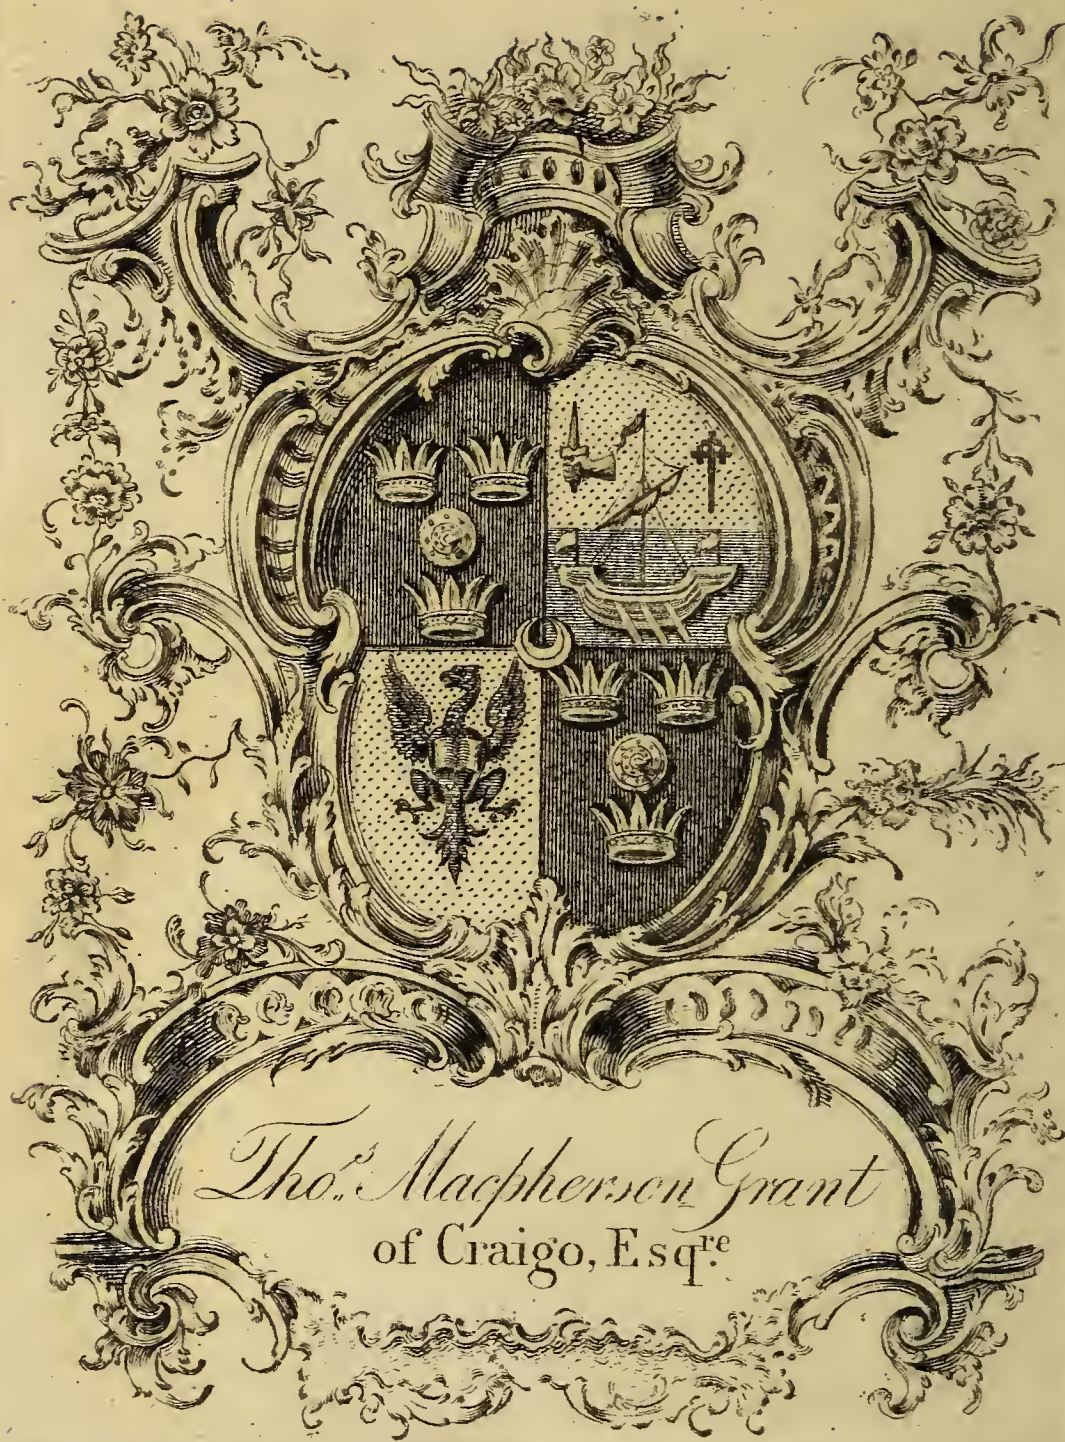 Tho.s Macpherson Grant
of Craigo, Esq.re